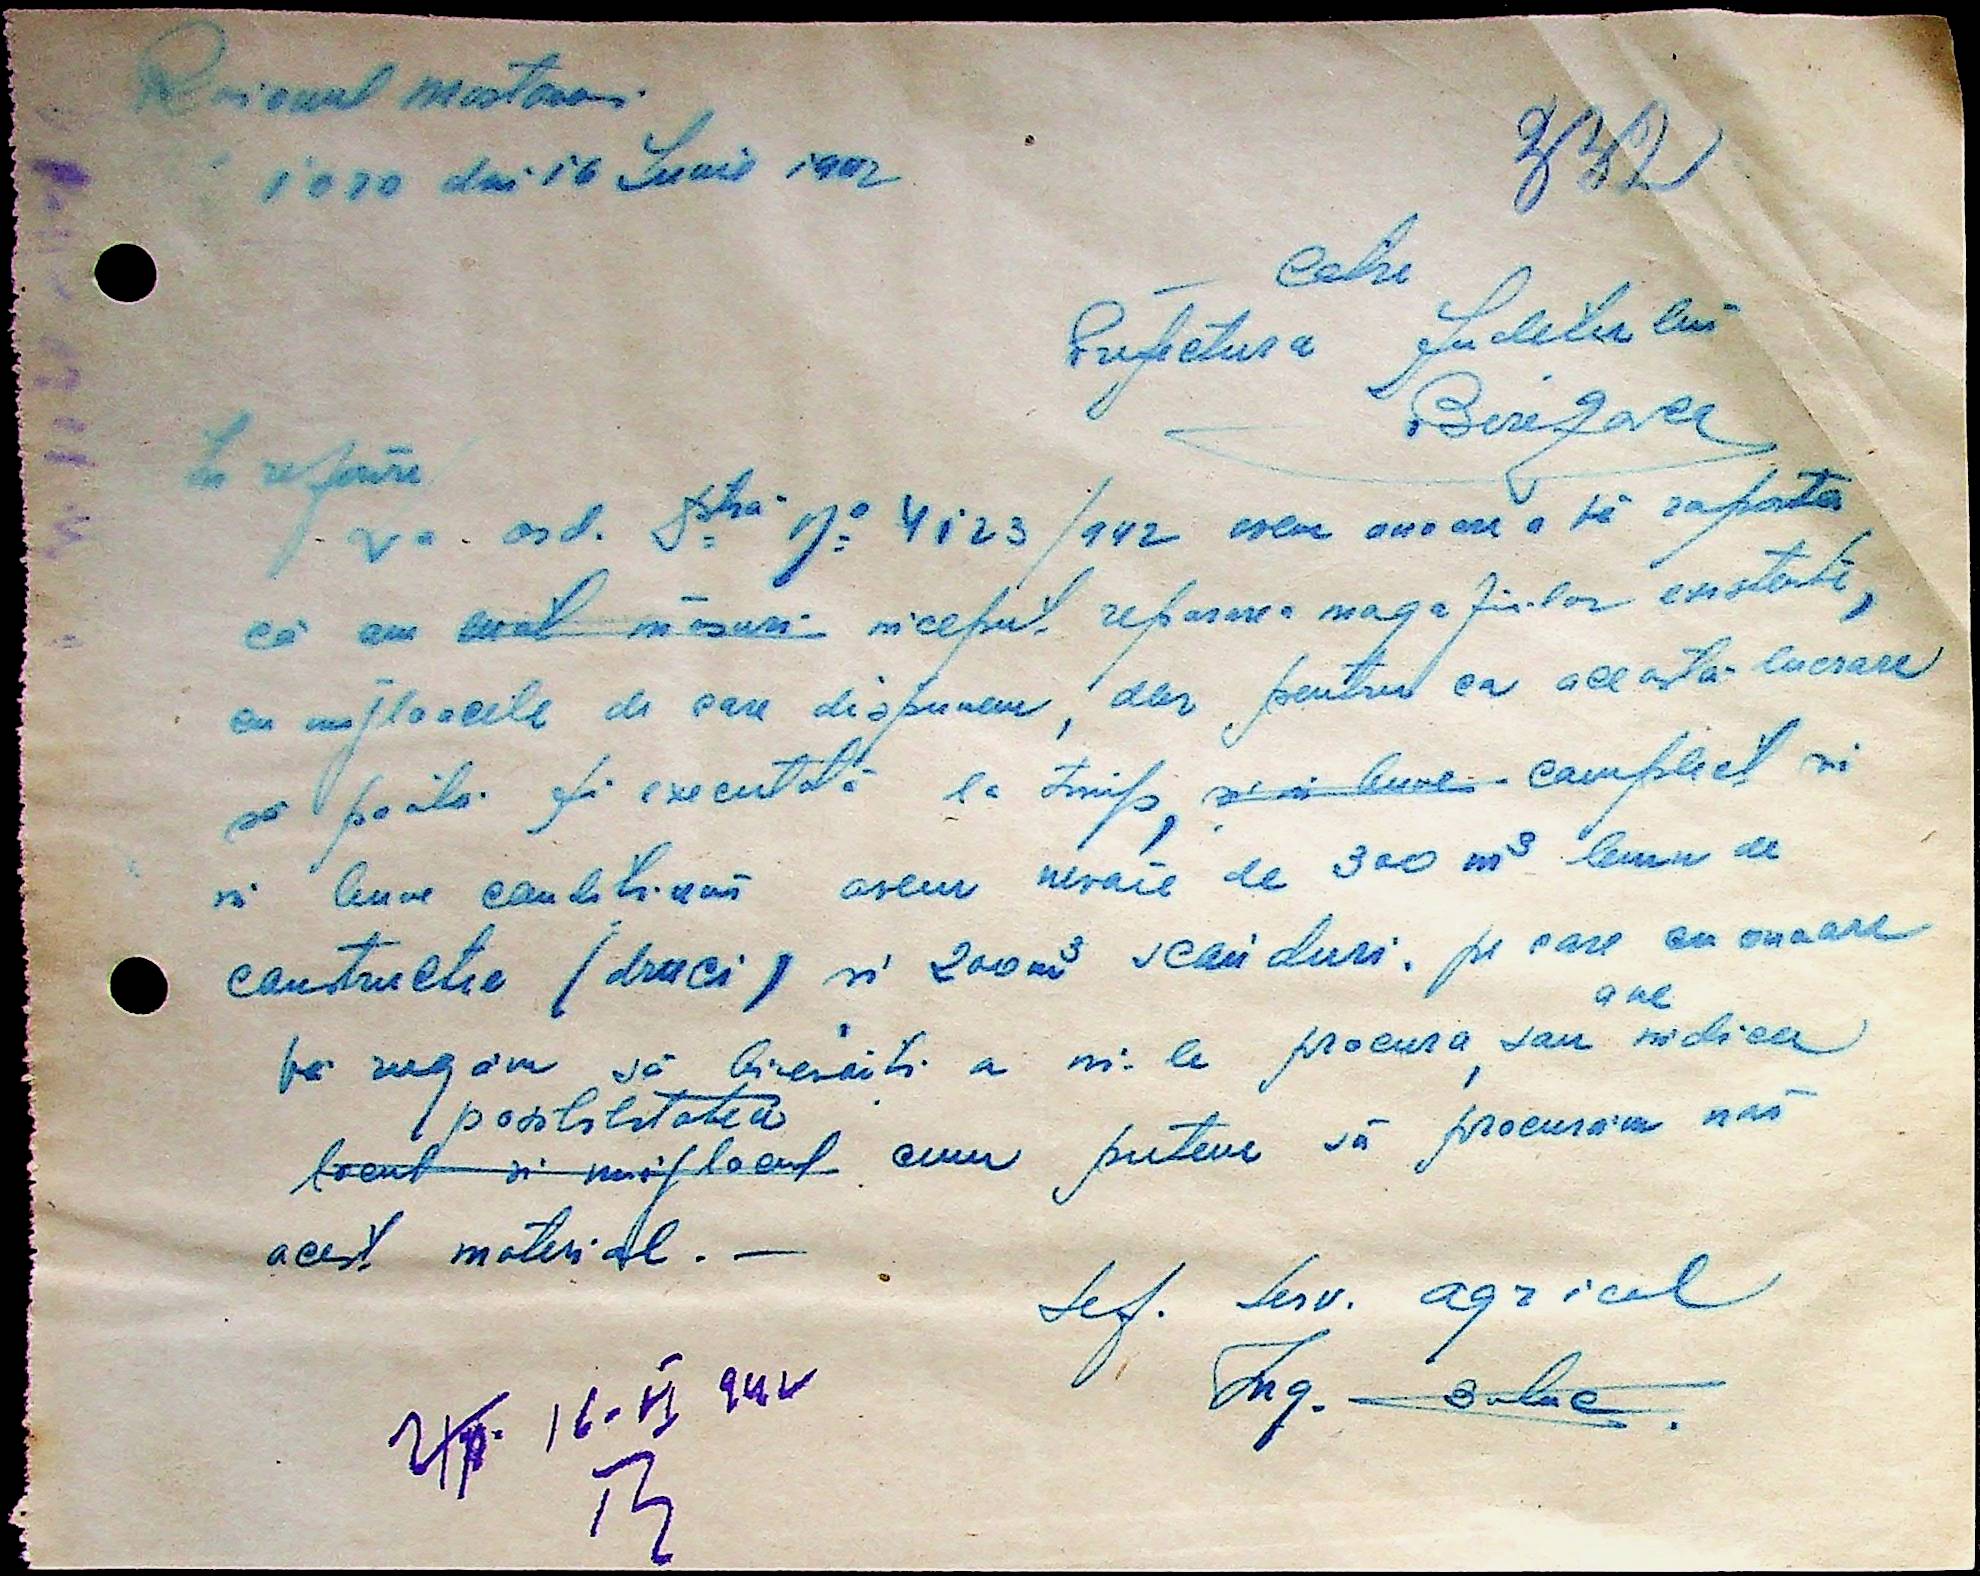 Raionul Mostovoi
1070 din 16 Iunie 1942
332
Catre
Prefectura Judetului
Berezovca
La referire
La ord. Dstră No 4123/942 avem onoare a vă raporta
că am luat măsuri inceput repararea magaziilor existente,
cu mijloacele de care dispunem, dar pentru ca această lucrare
să poată fi executată la timp, si in bune complect si
in bune conditiuni avem nevoie de 300 m3 lemn de
constructie (druci) si 200 m3 scânduri. pe care cu onoare
vă rugăm să binevoiti a ni-le procura, sau a ne indica
posibilitatea
locul si mijlocul cum putem să procurăm noi
acest material. —
Sef. Serv. agricol
Ing.
16-VI 942